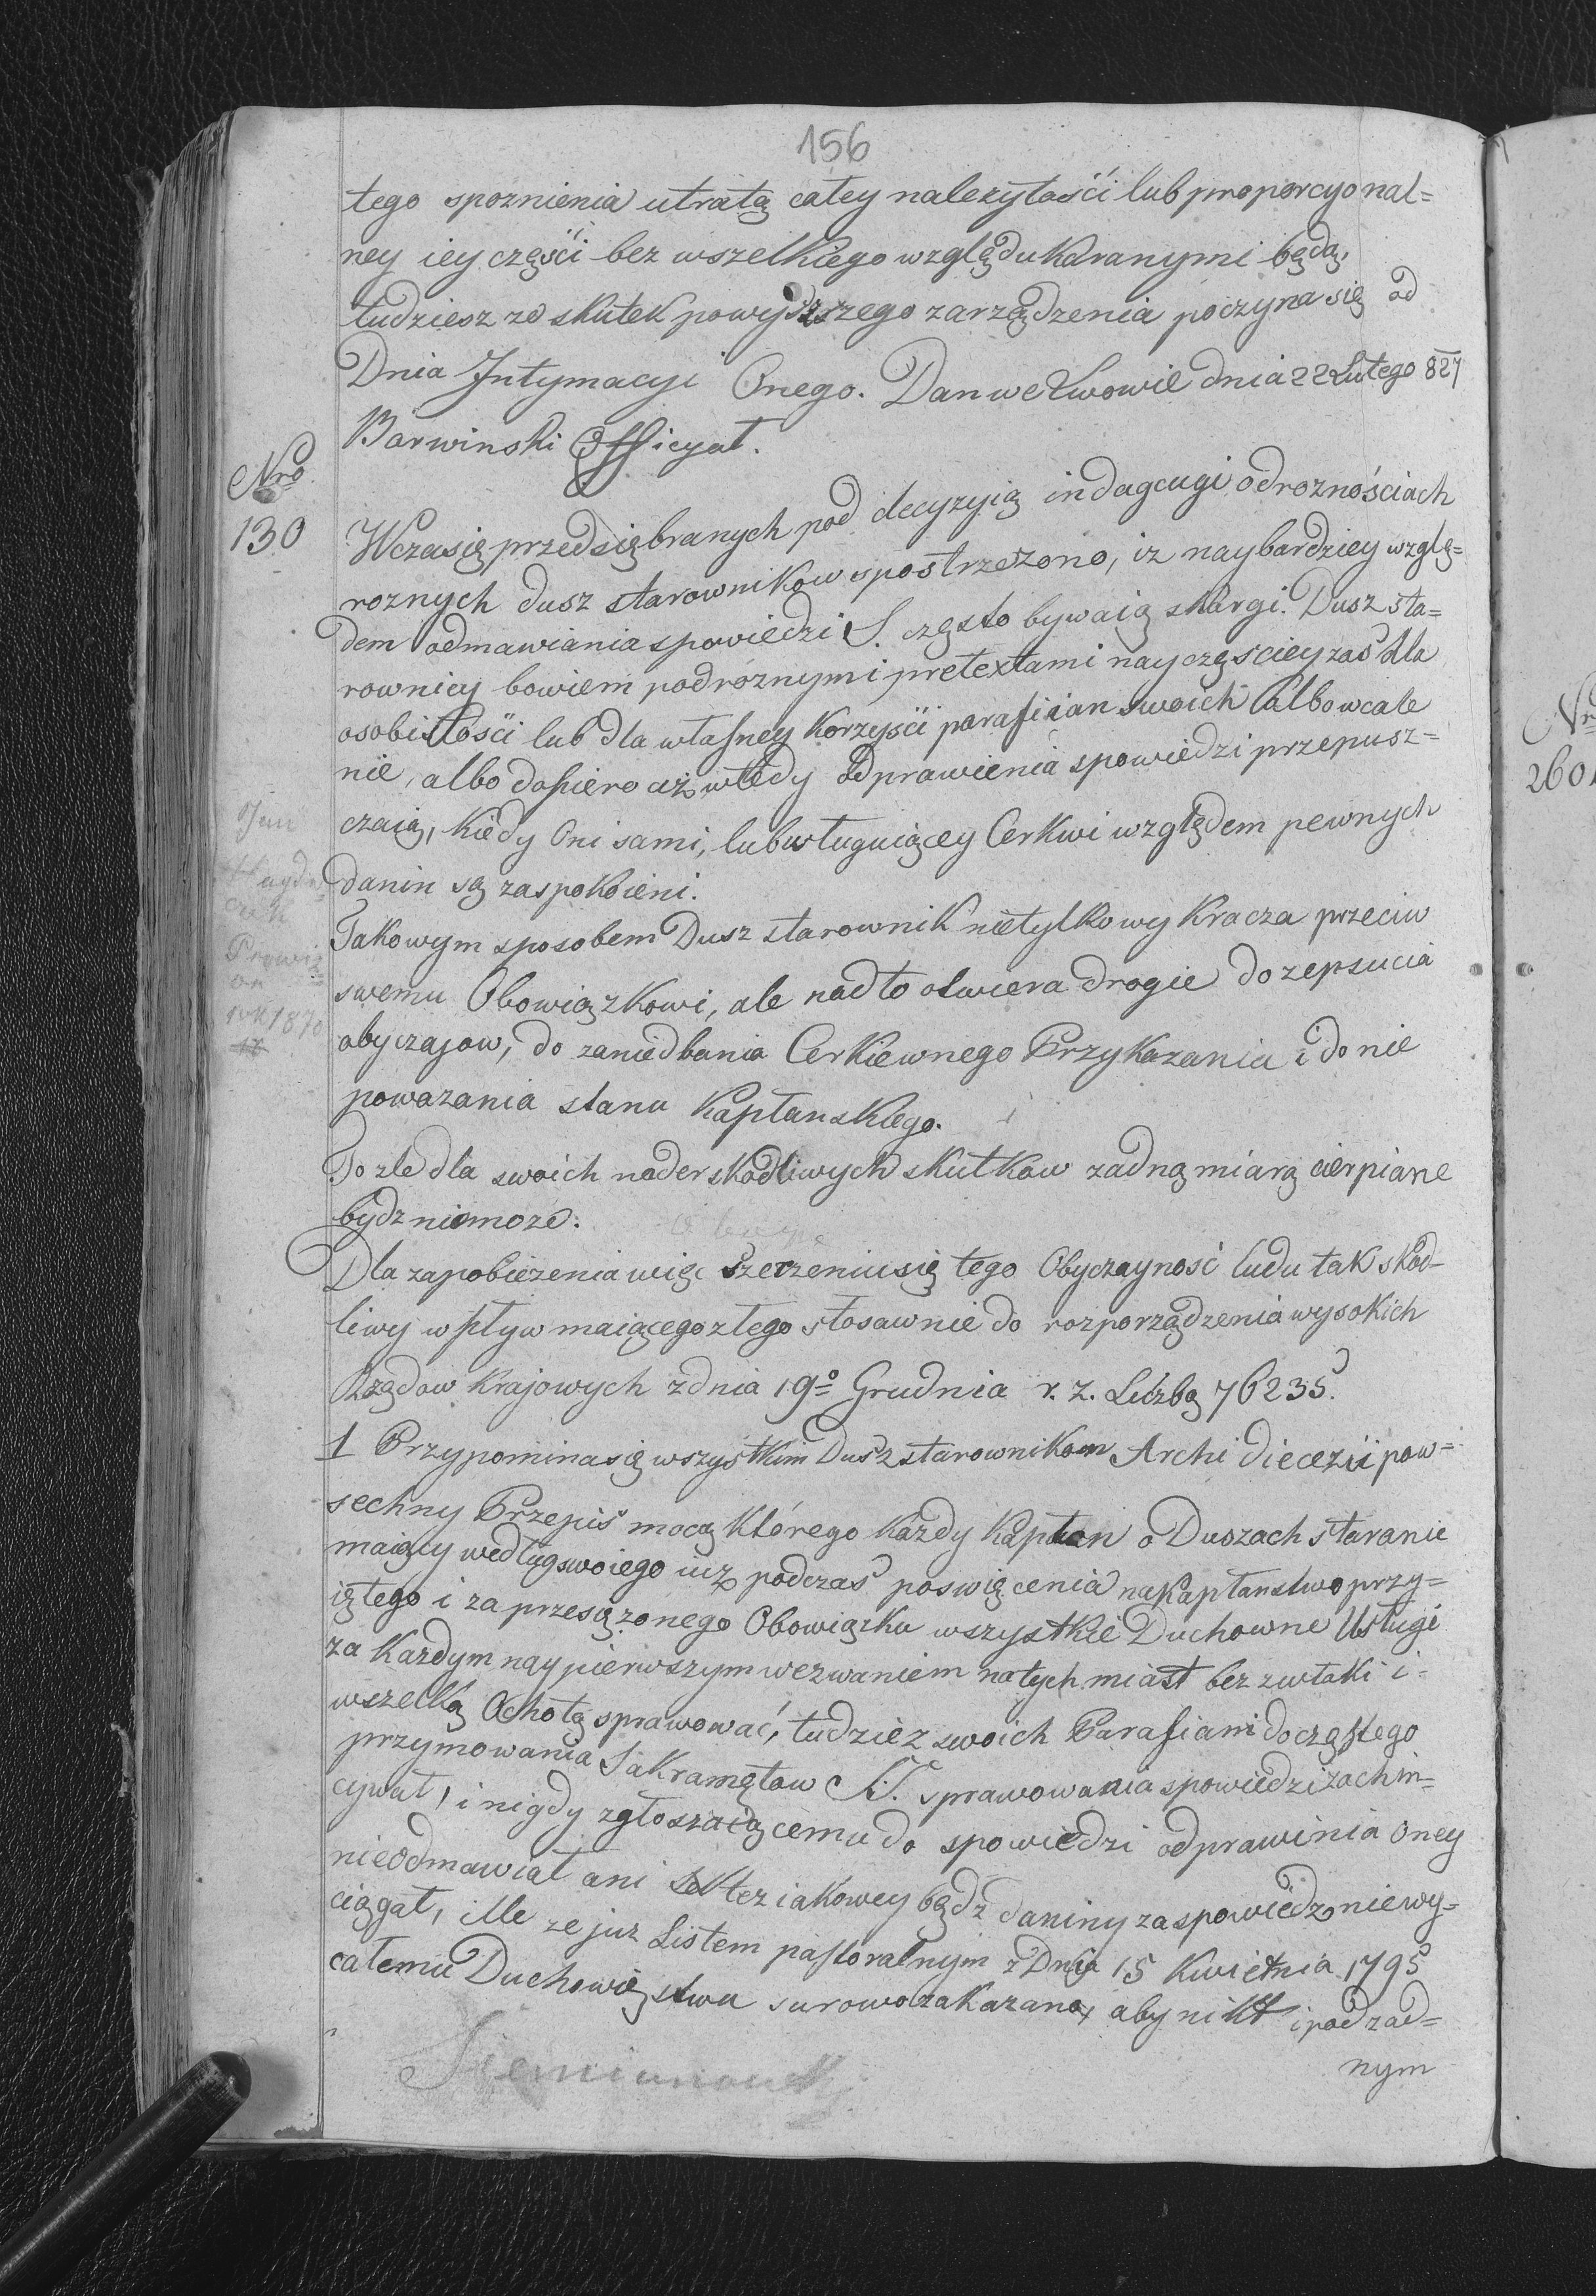 156
tego spoznienia utratą całey nalezytośći lub proporcyonal=
ney iey częśći bez wszelkiego względu karanymi będą,
tudziesz ze skutek powyższego zarządzenia poczyna się od
Dnia Intymacyi Onego. Dan we Lwowie dnia 22 Lutego 827
Barwinski Officyał.
Nro
130
Wczasię przedsiębranych pod decyzyią indagcugi odroznościach
roznych dusz starownikow spostrzeżono, iz naybardziey wzglę=
dem odmawiania spowiedzi S. często bywaią skargi. Dusz sta=
rownicy bowiem podróznymi pretextami nayczęściey zaś dla
osobistośći lub dla własney korzyśći parafiian swoich albo wcale
nie, albo dopiero aż wtedy odprawienia spowiedzi przepusz=
czaią, kiedy Oni sami, lub usługuiący Cerkwi względem pewnych
danin są zaspokoieni.
Jan
Prowiz
1870
Takowym sposobem Dusz starownik nietylko wykracza przeciw
swemu Obowiązkowi, ale nadto otwiera drogie do zepsucia
obyczajow, do zaniedbania Cerkiewnego Przykazania i do nie
powazania stanu Kapłanskiego.
To złe dla swoich nader skodliwych skutkow zadną miarą cierpiane
bydz niemoze.
Dla zapobiezenia więc szerzeniu się tego Obyczayność ludu tak skod-
liwy wpływ maiącego złego stosawnie do rozporządzenia wysokich
Rządow Krajowych z dnia 19º Grudnia r. z. Liczbą 76235.
1 Przypomina się wszystkim Dusz starownikom Archi Diecezii pow=
sechny Przepis mocą którego każdy Kapłan o Duszach staranie
maiący według swoiego iuż podczas poswięcenia na Kapłanstwo przy=
iętego i zaprzesięzonego Obowiązku wszystkie Duchowne Usługi
za Każdym naypierwszym wezwaniem natychmiast bez zwłoki i
wszelką Ochotą sprawować, tudziez swoich Parafiani do częstego
przymowania Sakramętow SS. sprawowania spowiedzi zachin=
cywał, i nigdy zgłoszaiącemu do spowiedzi odprawinia oney
nieodmawiał ani też iakowey bądź daniny za spowiedz niewy=
ciągał, ille ze juz Listem pastoralnym z Dnia 15 Kwietnia 1795
całemu Duchowięstwu surowo zakazano, aby nikt i pod zad=
nym
Siemianowski
Nr
260